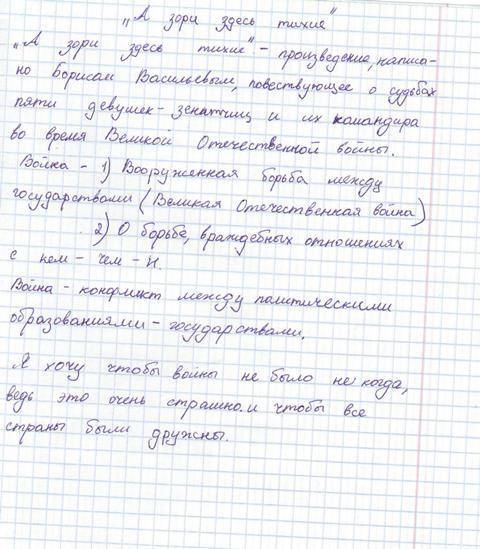 „А зори здесь тихие"
„А зори здесь тихие" - произведение, написа-
но Борисом Васильевым, повествующее о судьбах
пяти девушек-зенитчиц и их командира
во время Великой Отечественной войны.
Война - 1) Вооруженная борьба между
государствами (Великая Отечественная война)
2) О борьбе, враждебных отношениях
с кем - чем - н.
Война - конфликт между политическими
образованиями - государствами.
Я хочу чтобы войны не было не когда,
ведь это очень страшно. и чтобы все
страны были дружны.